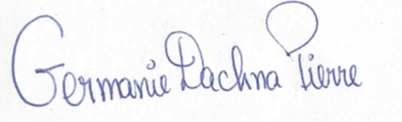 Germanie Dachna Pierre